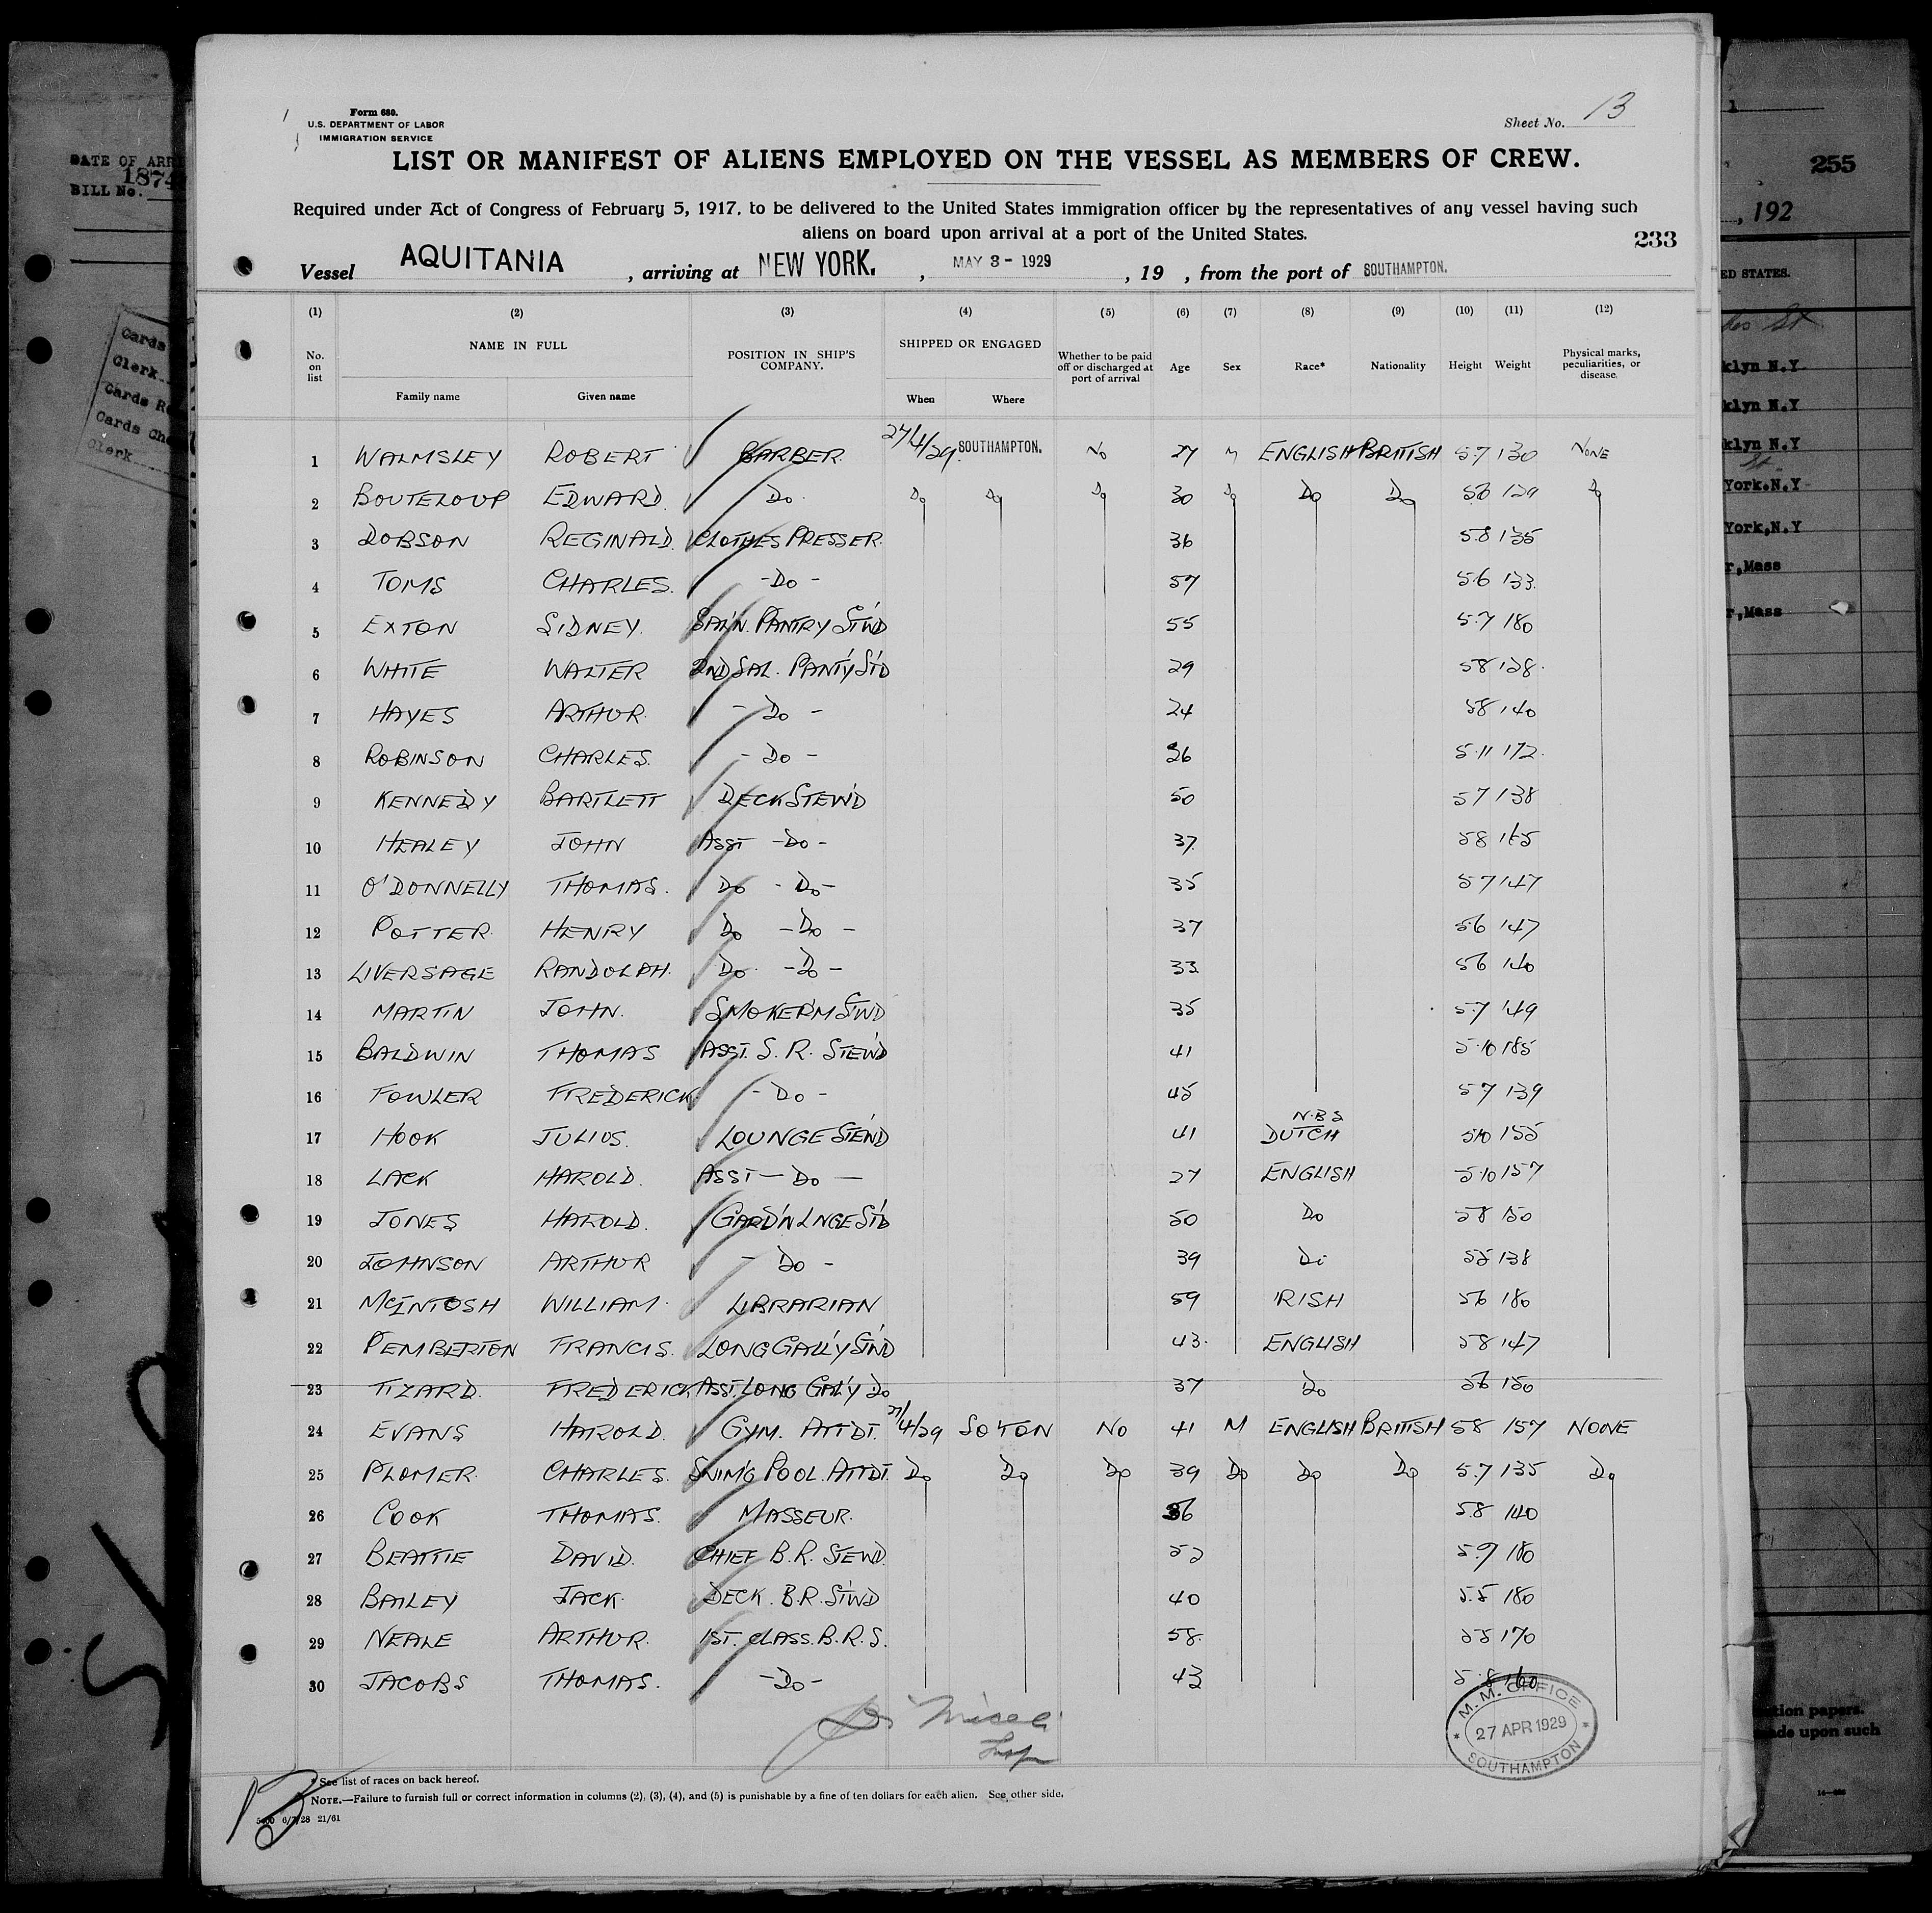 Form 680.
U.S. DEPARTMENT OF LABOR
IMMIGRATION SERVICE
Sheet No. 13
LIST OR MANIFEST OF ALIENS EMPLOYED ON THE VESSEL AS MEMBERS OF CREW.
Required under Act of Congress of February 5, 1917, to be delivered to the United States immigration officer by the representatives of any vessel having such
aliens on board upon arrival at a port of the United States.
233
Vessel AQUITANIA, arriving at NEW YORK., MAY 3 - 1929, 19 , from the port of SOUTHAMPTON.
(1) (2) (3) (4) (5) (6) (7) (8) (9) (10) (11) (12)
No. on list NAME IN FULL POSITION IN SHIP'S COMPANY. SHIPPED OR ENGAGED Whether to be paid off or discharged at port of arrival Age Sex Race* Nationality Height Weight Physical marks, peculiarities, or disease.
Family name Given name When Where
1 WALMSLEY ROBERT BARBER 27/4/29 SOUTHAMPTON. No 27 M ENGLISH BRITISH 5.7 130 NONE
2 BOUTELOUP EDWARD. Do. Do Do Do 30 Do Do Do 56 129 Do
3 DOBSON REGINALD. CLOTHES PRESSER. 36 5.8 135
4 TOMS CHARLES. -Do- 57 5.6 133.
5 EXTON SIDNEY. SAL'N. PANTRY ST'WD 55 5.7 180
6 WHITE WALTER 2ND SAL. PANT'Y ST'D 29 58 128.
7 HAYES ARTHUR. - Do - 24 58 140
8 ROBINSON CHARLES. - Do - 36 5.11 172.
9 KENNEDY BARTLETT DECK STEW'D 50 57 138
10 HEALEY JOHN ASST -Do- 37. 58 165
11 O'DONNELLY THOMAS. Do - Do- 35 57 147
12 POTTER. HENRY Do -Do - 37 56 147
13 LIVERSAGE RANDOLPH. Do. -Do - 33. 56 140
14 MARTIN JOHN. SMOKER'M ST'WD 35 5.7 149
15 BALDWIN THOMAS ASST. S. R. STEW'D 41 5.10 185
16 FOWLER FREDERICK - Do - 45 57 139
N.B.S
17 HOOK JULIUS. LOUNGE STEW'D 41 DUTCH 5.10 155
18 LACK HAROLD. ASST — Do — 27 ENGLISH 5.10 157
19 JONES HAROLD. GARD'N LNGE ST'D 50 Do 58 150
20 JOHNSON ARTHUR - Do - 39 Do 55 138
21 McINTOSH WILLIAM. LIBRARIAN 59 IRISH 56 180
22 PEMBERTON FRANCIS. LONG GALL'Y ST'WD 43. ENGLISH 58 147
23 TIZARD. FREDERICK ASST. LONG GAL'Y Do 37 Do 56 150
24 EVANS HAROLD. GYM. ATTDT. 27/4/29 SO'TON No 41 M ENGLISH BRITISH 58 157 NONE
25 PLOMER. CHARLES. SWIM'G POOL. ATTDT. Do Do Do 39 Do Do Do 5.7 135 Do
26 COOK THOMAS. MASSEUR. 36 5.8 140
27 BEATTIE DAVID. CHIEF B.R. STEWD. 52 5.9 180
28 BAILEY JACK. DECK. B.R. ST'WD 40 5.5 180
29 NEALE ARTHUR. 1ST. CLASS. B.R.S. 58. 55 170
30 JACOBS THOMAS. -Do- 43 5.8 160
M.M. OFFICE
27 APR 1929
SOUTHAMPTON
* See list of races on back hereof.
NOTE.—Failure to furnish full or correct information in columns (2), (3), (4), and (5) is punishable by a fine of ten dollars for each alien. See other side.
21/61
DATE OF ARR
BILL No.
Cards
Clerk
Cards R
Cards Che
Clerk
255
, 192
ED STATES.
klyn N.Y.
klyn N.Y
klyn N.Y
York.N.Y
York,N.Y
r,Mass
r,Mass
tion papers.
ade upon such